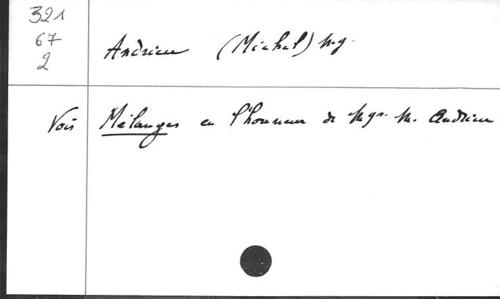 321
67
2
Andrieu (Michel) Mg.
Voir Mélanges en l'honneur de Mgr. M. Andrieu